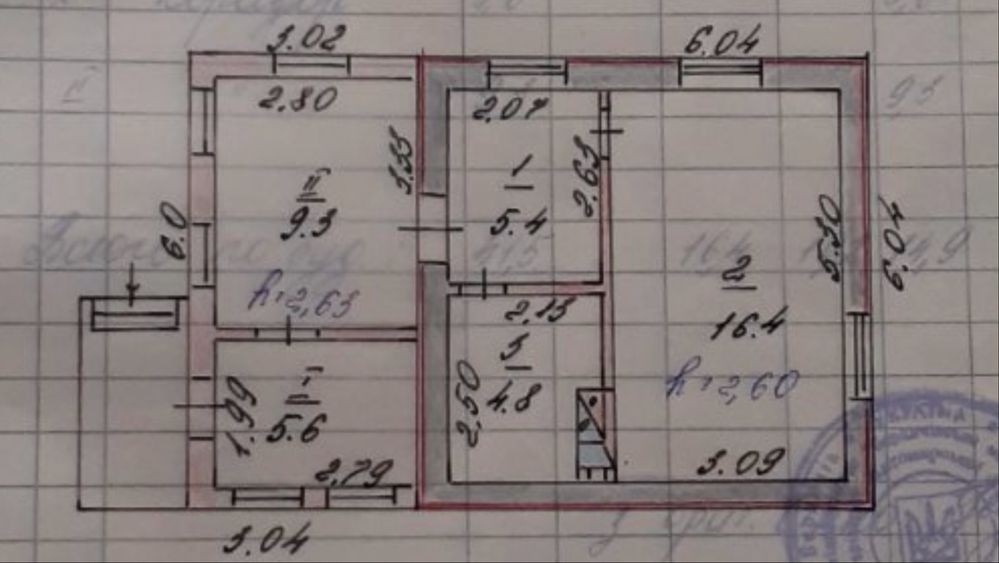 3.02
6.04
2.80
2.07
3.33
2.63
II
9.3
1
5.4
6.0
5.30
6.04
2
16.4
h=2,63
2.13
3
4.8
2.50
h=2,60
I
5.6
1.99
2,79
3.09
3.04
УКРАЇНА